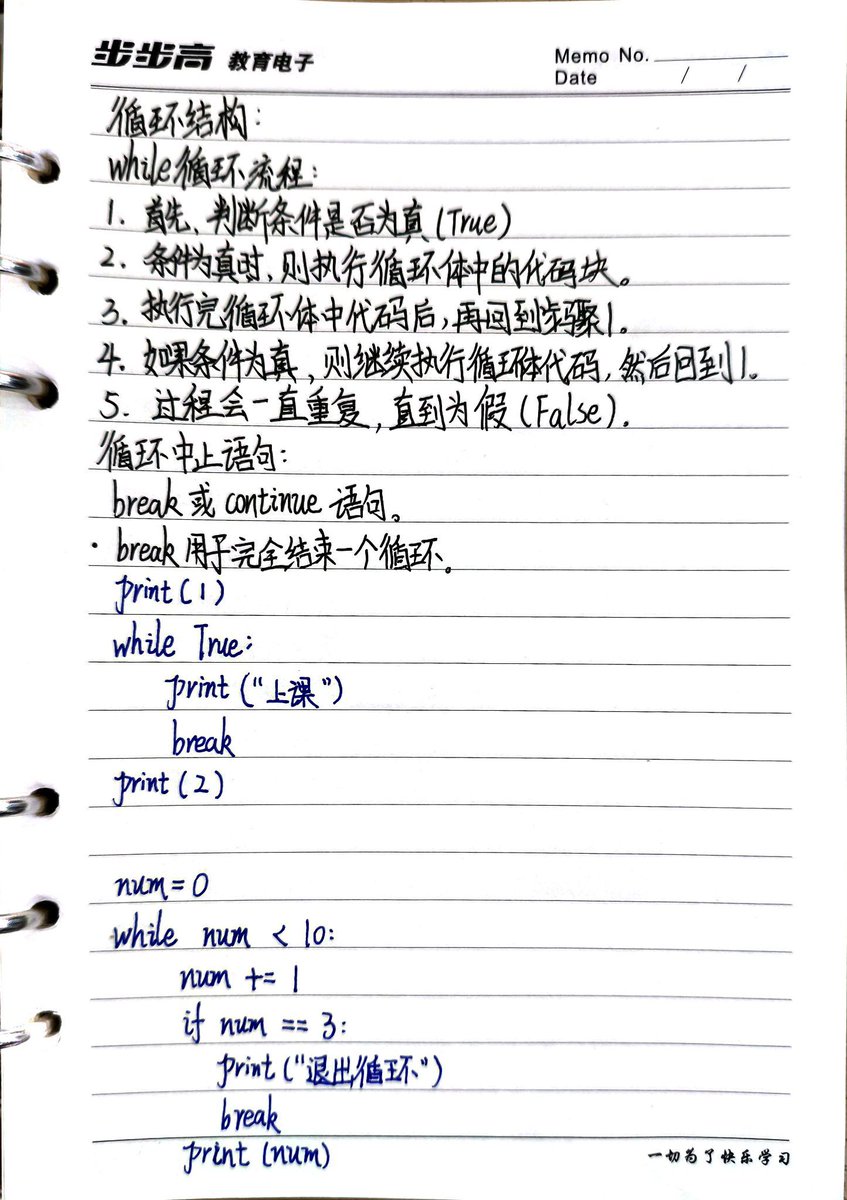 步步高 教育电子
Memo No.
Date / /
循环结构:
while循环流程:
1. 首先、判断条件是否为真(True)
2. 条件为真时,则执行循环体中的代码块。
3. 执行完循环体中代码后,再回到步骤1。
4. 如果条件为真,则继续执行循环体代码,然后回到1。
5. 过程会一直重复,直到为假(False)。
循环中止语句:
break 或 continue 语句。
· break 用于完全结束一个循环。
print(1)
while True:
    print("上课")
    break
print(2)
num=0
while num < 10:
    num += 1
    if num == 3:
        print("退出循环")
        break
    print(num)
一切为了快乐学习